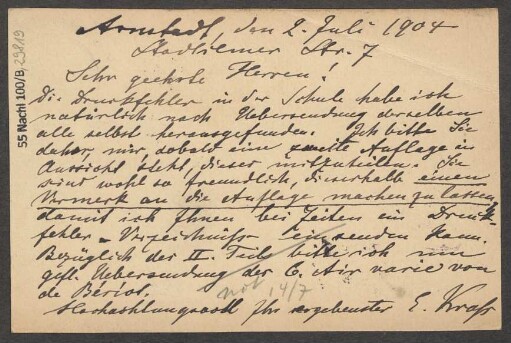 Arnstadt, den 2. Juli 1904
Stadtilmer Str. 7
Sehr geehrte Herren!
Die Druckfehler in der Schule habe ich
natürlich nach Uebersendung derselben
alle selbst herausgefunden. Ich bitte Sie
daher, mir, sobald eine zweite Auflage in
Aussicht steht, dieses mitzuteilen. Sie
sind wohl so freundlich, dieserhalb einen
Vermerk an die Auflage machen zu lassen,
damit ich Ihnen bei Zeiten ein Druck-
fehler-Verzeichniss einsenden kann.
Bezüglich des II. Teils bitte ich um
gefl. Uebersendung der 6. Air varié von
de Bériot.
not 14/7
Hochachtungsvoll Ihr ergebenster E. Krass
55 Nachl 100/B, 29819